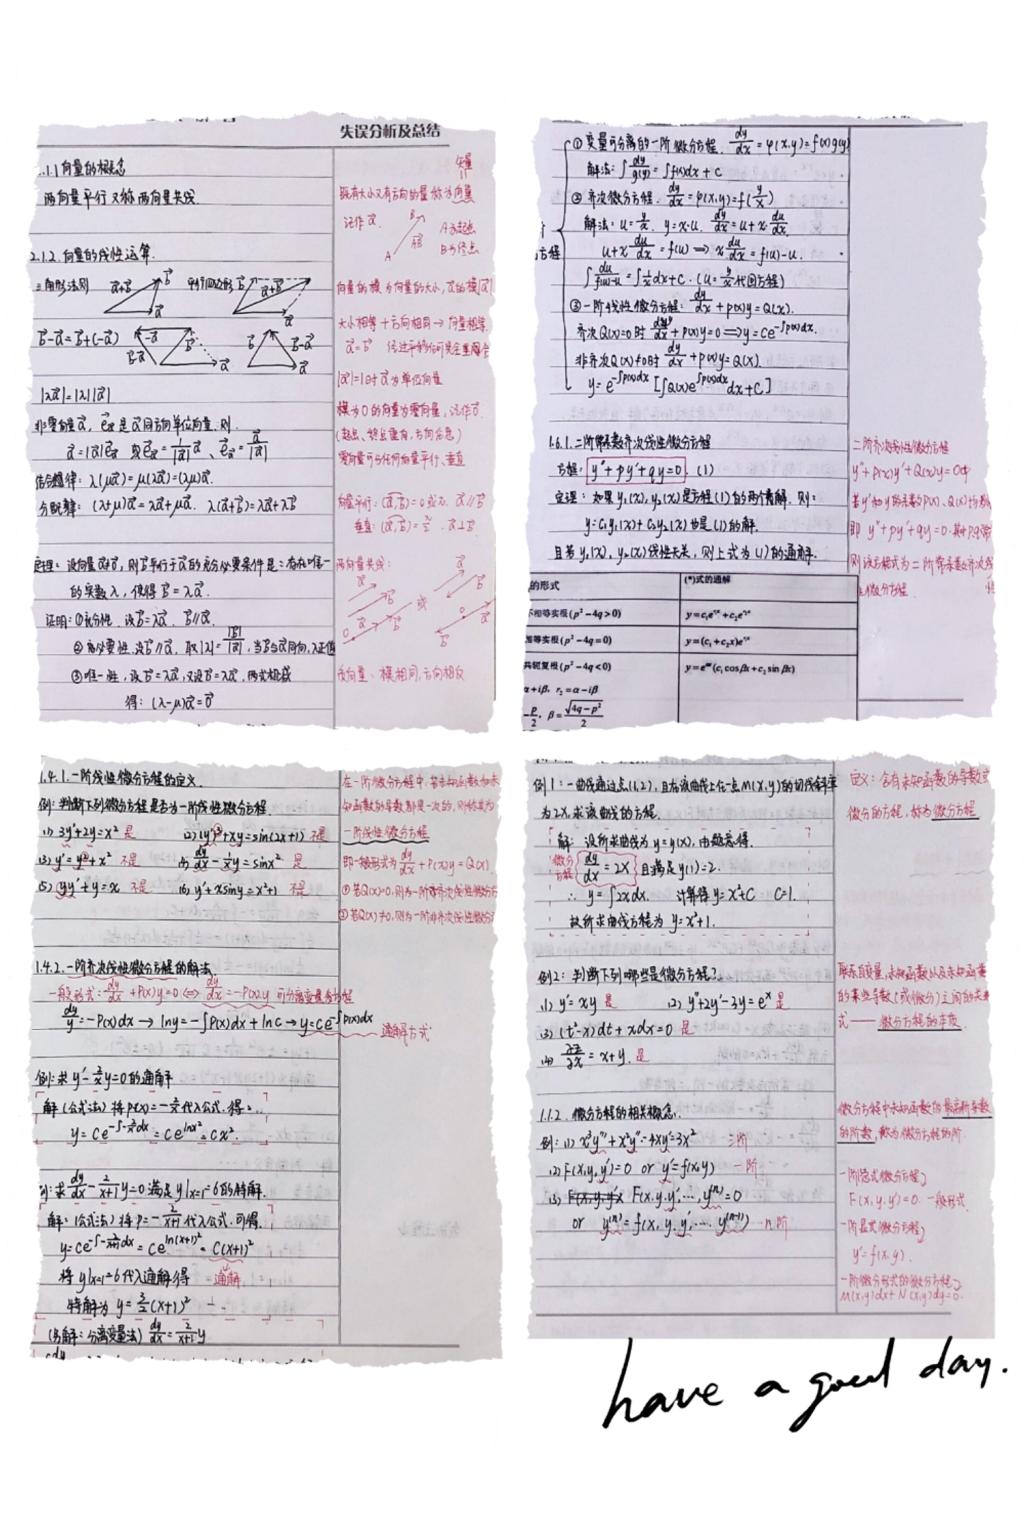 失误分析及总结
.1.1 向量的概念
两向量平行又称两向量共线.
矢量
既有大小又有方向的量称为向量
记作 a⃗.
B
A
AB⃗
A为起点
B为终点
2.1.2. 向量的线性运算.
三角形法则
平行四边形
a⃗+b⃗
b⃗-a⃗=b⃗+(-a⃗)
向量的模为向量的大小, a⃗的模|a⃗|
大小相等+方向相同→向量相等
a⃗=b⃗
|a⃗|=1时a⃗为单位向量
|λa⃗|=|λ||a⃗|
模为0的向量为零向量, 记作0⃗.
(起点、终点重合, 方向任意)
零向量可与任何向量平行、垂直
非零向量a⃗, e⃗a是a⃗同方向单位向量. 则.
结合律: λ(μa⃗)=μ(λa⃗)=(λμ)a⃗.
分配律: (λ+μ)a⃗=λa⃗+μa⃗. λ(a⃗+b⃗)=λa⃗+λb⃗
向量平行: (a⃗,b⃗)=0或π. a⃗∥b⃗
垂直: (a⃗,b⃗)=π/2. a⃗⊥b⃗
定理: 设向量a⃗≠0⃗, 则b⃗平行于a⃗的充分必要条件是: 存在唯一
的实数λ, 使得b⃗=λa⃗.
证明: ①充分性. 设b⃗=λa⃗. b⃗∥a⃗.
②必要性. 设b⃗∥a⃗. 取|λ|=|b⃗|/|a⃗|, 当b⃗与a⃗同向, λ正值
③唯一性, 设b⃗=λa⃗, 又设b⃗=μa⃗, 两式相减
得: (λ-μ)a⃗=0⃗
两向量共线:
或
负向量: 模相同, 方向相反
①变量可分离的一阶微分方程. dy/dx=φ(x,y)=f(x)g(y)
解法: ∫dy/g(y)=∫f(x)dx+C
②齐次微分方程. dy/dx=φ(x,y)=f(y/x)
解法: u=y/x. y=x·u. dy/dx=u+x·du/dx.
u+x du/dx=f(u)⟹x du/dx=f(u)-u.
∫du/(f(u)-u)=∫1/x dx+C. (u=y/x代回方程)
③一阶线性微分方程: dy/dx+p(x)y=Q(x).
齐次Q(x)=0时 dy/dx+p(x)y=0⟹y=Ce^{-∫p(x)dx}.
非齐次Q(x)≠0时 dy/dx+p(x)y=Q(x).
y=e^{-∫p(x)dx}[∫Q(x)e^{∫p(x)dx}dx+C]
方程
1.6.1. 二阶常系数齐次线性微分方程
方程: y″+py′+qy=0 (1)
定理: 如果y₁(x), y₂(x)是方程(1)的两个特解. 则:
y=C₁y₁(x)+C₂y₂(x)也是(1)的解.
且若y₁(x), y₂(x)线性无关, 则上式为(1)的通解.
二阶齐次线性微分方程
y″+P(x)y′+Q(x)y=0中
即 y″+py′+qy=0. 其中p.q常
微分方程.
的形式 (*)式的通解
不相等实根(p²-4q>0) y=c₁e^{r₁x}+c₂e^{r₂x}
相等实根(p²-4q=0) y=(c₁+c₂x)e^{r₁x}
共轭复根(p²-4q<0) y=e^{αx}(c₁cosβx+c₂sinβx)
α+iβ, r₂=α-iβ
-p/2, β=√(4q-p²)/2
1.4.1. 一阶线性微分方程的定义.
例: 判断下列微分方程是否为一阶线性微分方程.
(1) 3y′+2y=x² 是 (2) (y′)²+xy=sin(2x+1) 不是
(3) y′=y²+x² 不是 (4) dy/dx-1/x y=sinx² 是
(5) yy′+y=x 不是 (6) y′+xsiny=x²+1 不是
在一阶微分方程中, 若未知函数和未
知函数的导数都是一次的, 则称其为
一阶线性微分方程
即一般形式为dy/dx+P(x)y=Q(x).
①若Q(x)=0, 则为一阶齐次线性微分方
②若Q(x)≠0, 则为一阶非齐次线性微分方
1.4.2. 一阶齐次线性微分方程的解法.
一般形式: dy/dx+P(x)y=0⟺dy/dx=-P(x)y 可分离变量微分方程
dy/y=-P(x)dx→lny=-∫P(x)dx+lnC→y=Ce^{-∫P(x)dx} 通解方式
例: 求y′-2/x y=0的通解
解(公式法) 将P(x)=-2/x代入公式, 得:
y=Ce^{-∫-2/x dx}=Ce^{lnx²}=Cx².
例: 求dy/dx-2/(x+1) y=0满足y|x=1=6的特解.
解: (公式法) 将P=-2/(x+1)代入公式. 可得.
y=Ce^{-∫-2/(x+1)dx}=Ce^{ln(x+1)²}=C(x+1)²
将y|x=1=6代入通解得 通解
特解为 y=3/2(x+1)²
(另解: 分离变量法) dy/dx=2/(x+1) y
例1: 一曲线通过点(1,2), 且在该曲线上任一点M(x,y)的切线斜率
为2x, 求该曲线的方程.
解: 设所求曲线为y=y(x), 由题意得.
微分方程 dy/dx=2x 且满足y(1)=2.
∴ y=∫2xdx. 计算得y=x²+C C=1.
故所求曲线方程为y=x²+1.
定义: 含有未知函数的导数或
微分的方程, 称为微分方程
例2: 判断下列哪些是微分方程?
(1) y′=xy 是 (2) y″+2y′-3y=eˣ 是
(3) (t²-x)dt+xdx=0 是
(4) ∂z/∂x=x+y. 是
联系自变量, 未知函数以及未知函数
的某些导数(或微分)之间的关系
式——微分方程的本质
1.1.2. 微分方程的相关概念.
例: (1) x³y‴+x²y″-4xy′=3x² 三阶
(2) F(x,y,y′)=0 or y′=f(x,y) 一阶
(3) F(x,y,y′,…,y⁽ⁿ⁾)=0
or y⁽ⁿ⁾=f(x,y,y′,…,y⁽ⁿ⁻¹⁾) n阶
微分方程中未知函数的最高阶导数
的阶数, 称为微分方程的阶.
一阶隐式微分方程
F(x,y,y′)=0. 一般形式.
一阶显式微分方程
y′=f(x,y).
一阶微分形式的微分方程
M(x,y)dx+N(x,y)dy=0.
have a good day.